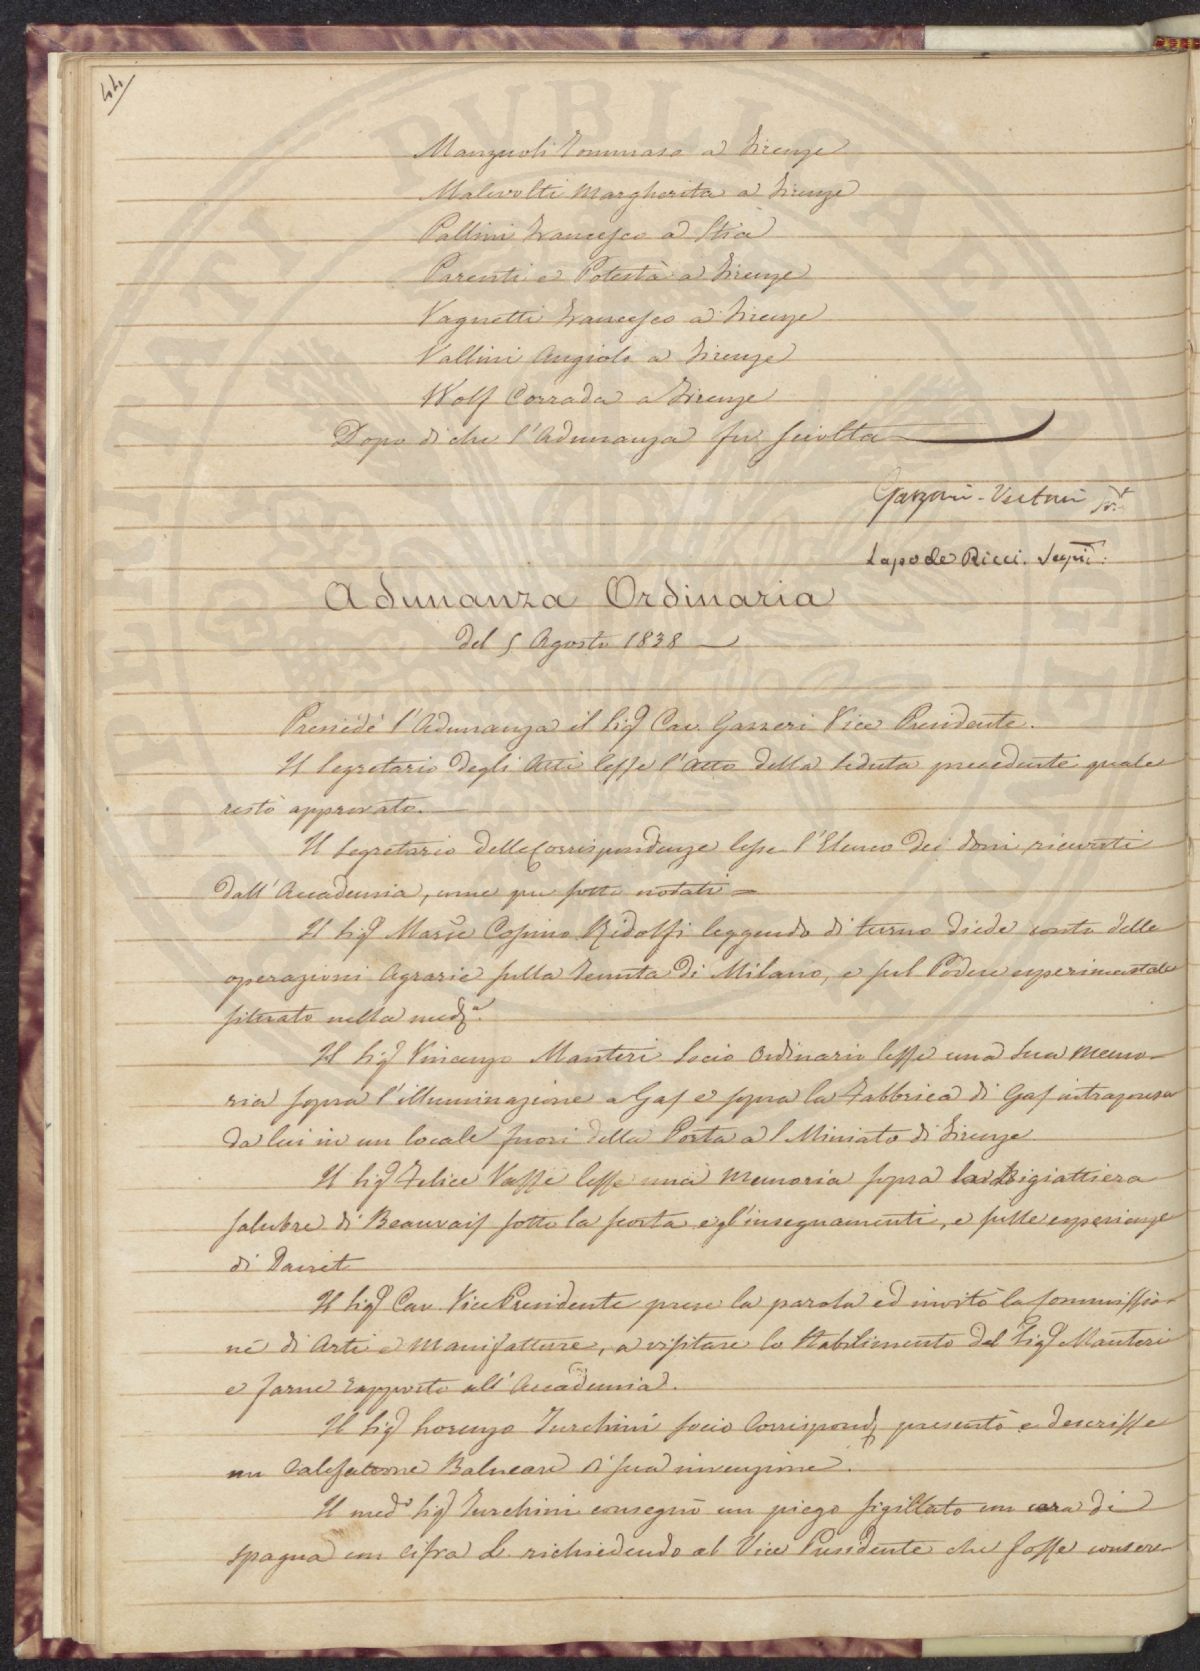 44
Manzuoli Tommaso a Firenze
Malevolti Margherita a Firenze
Pallini Francesco a Stia
Parenti e Potestà a Firenze
Vagnetti Francesco a Firenze
Vallini Angiolo a Firenze
Wolf Corrada a Firenze
Dopo di che l'Adunanza fu sciolta
Garzoni-Venturi
Lapo de Ricci. Segr.
Adunanza Ordinaria
del 5 Agosto 1838
Presiedè l'Adunanza il Sigr Cav. Gazzeri Vice Presidente.
Il Segretario degli Atti lesse l'Atto della Seduta precedente quale
restò approvato.
Il Segretario delle Corrispondenze lesse l'Elenco dei doni ricevuti
dall'Accademia, come qui sotto notati =
Il Sigr Marse Cosimo Ridolfi leggendo di turno diede conto delle
operazioni Agrarie sulla Tenuta di Milano, e sul Podere esperimentale
situato nella meda.
Il Sigr Vincenzo Manteri Socio Ordinario lesse una sua Memo-
ria sopra l'illuminazione a Gas e sopra la Fabbrica di Gas intrapresa
da lui in un locale fuori della Porta a S Miniato di Firenze
Il Sigr Felice Vasse lesse una Memoria sopra la Bigiattiera
salubre di Beauvais sotto la scorta, e gl'insegnamenti, e sulle esperienze
di Darcet
Il Sigr Cav. Vice Presidente prese la parola ed invitò la Commissio-
ne di Arti e Manifatture, a visitare lo Stabilimento del Sigr Manteri
e farne rapporto all'Accademia.
Il Sigr Lorenzo Turchini socio Corrispond presentò e descrisse
un Calefattore Balneare di sua invenzione.
Il medo Sigr Turchini consegnò un piego sigillato con cera di
Spagna con cifra L. richiedendo al Vice Presidente che fosse conser-